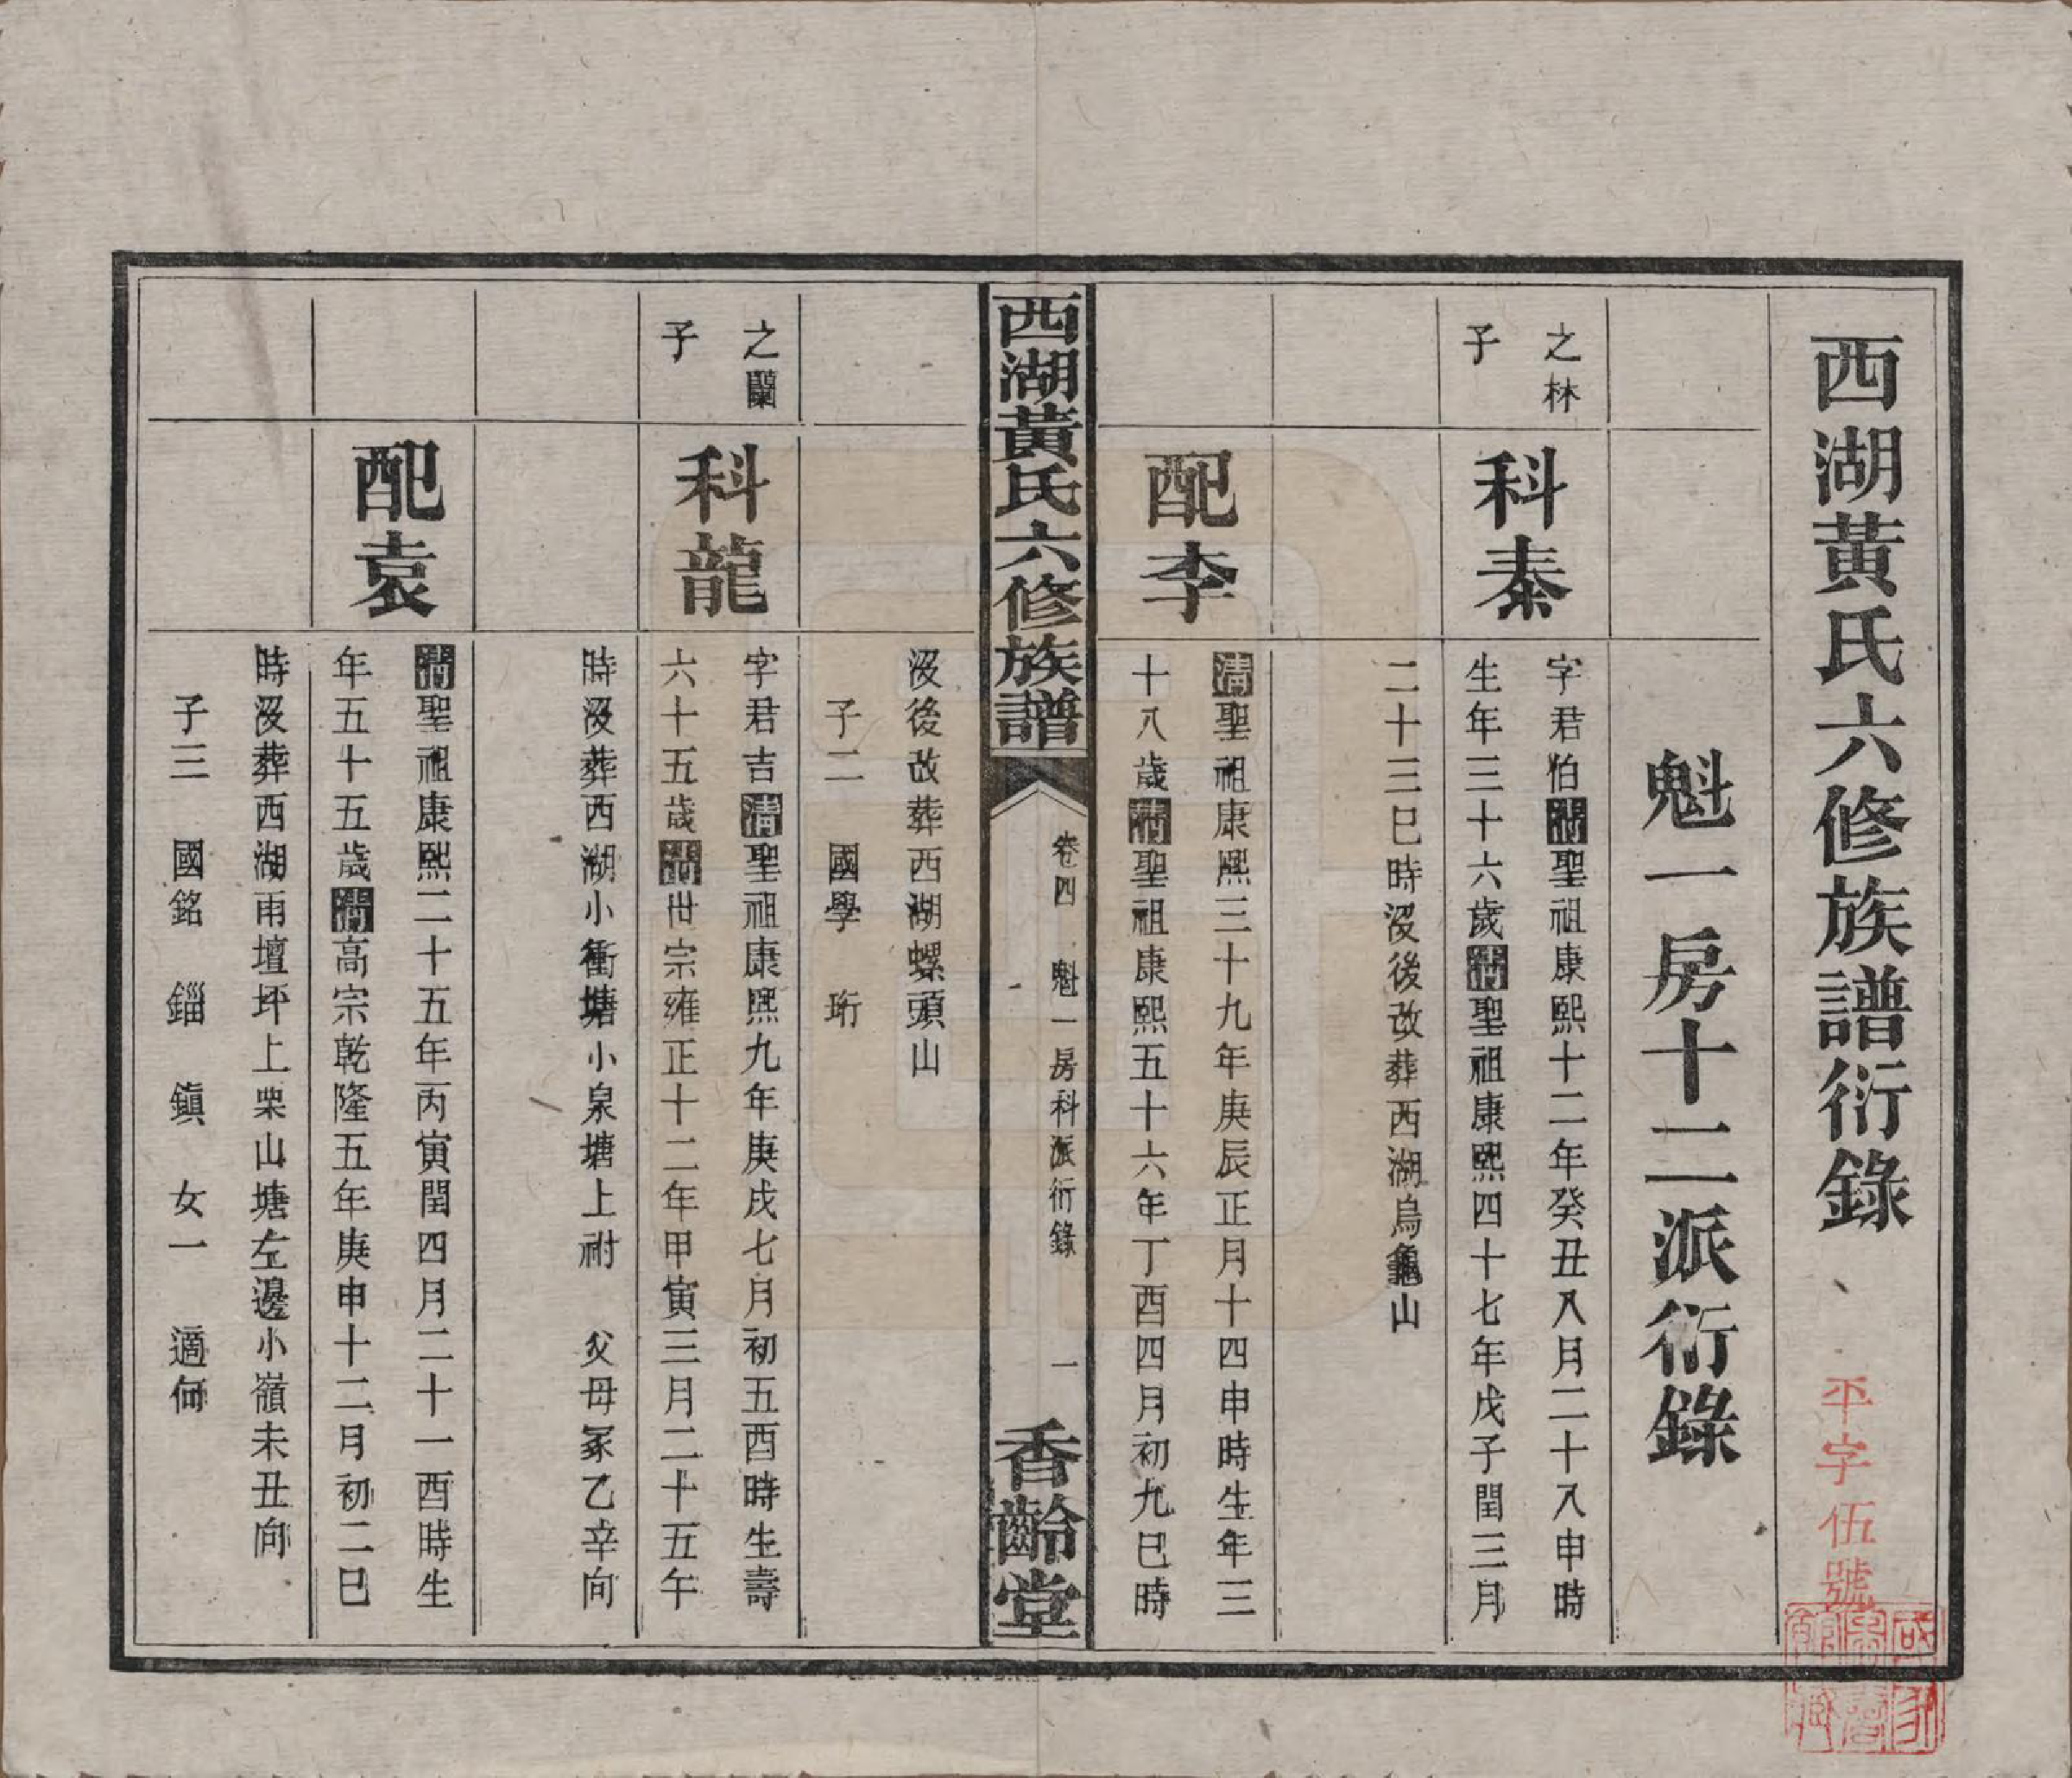 西湖黃氏六修族譜衍錄
平字伍號
魁一房十二派衍錄
之林
子
科泰
字君怕清聖祖康熙十二年癸丑八月二十八申時
生年三十六歲清聖祖康熙四十七年戊子閏三月
二十三巳時沒後改葬西湖烏龜山
配李
清聖祖康熙三十九年庚辰正月十四申時生年三
十八歲清聖祖康熙五十六年丁酉四月初九巳時
西湖黃氏六修族譜
卷四 魁一房科派衍錄 一
香齡堂
沒後改葬西湖螺頭山
子二 國學 珩
之蘭
子
科龍
字君吉清聖祖康熙九年庚戌七月初五酉時生壽
六十五歲清世宗雍正十二年甲寅三月二十五午
時沒葬西湖小衝塘小泉塘上祔 父母冢乙辛向
配袁
清聖祖康熙二十五年丙寅閏四月二十一酉時生
年五十五歲清高宗乾隆五年庚申十二月初二巳
時沒葬西湖雨壇坪上栗山塘左邊小嶺未丑向
子三 國銘 錙 鎮 女一 適何